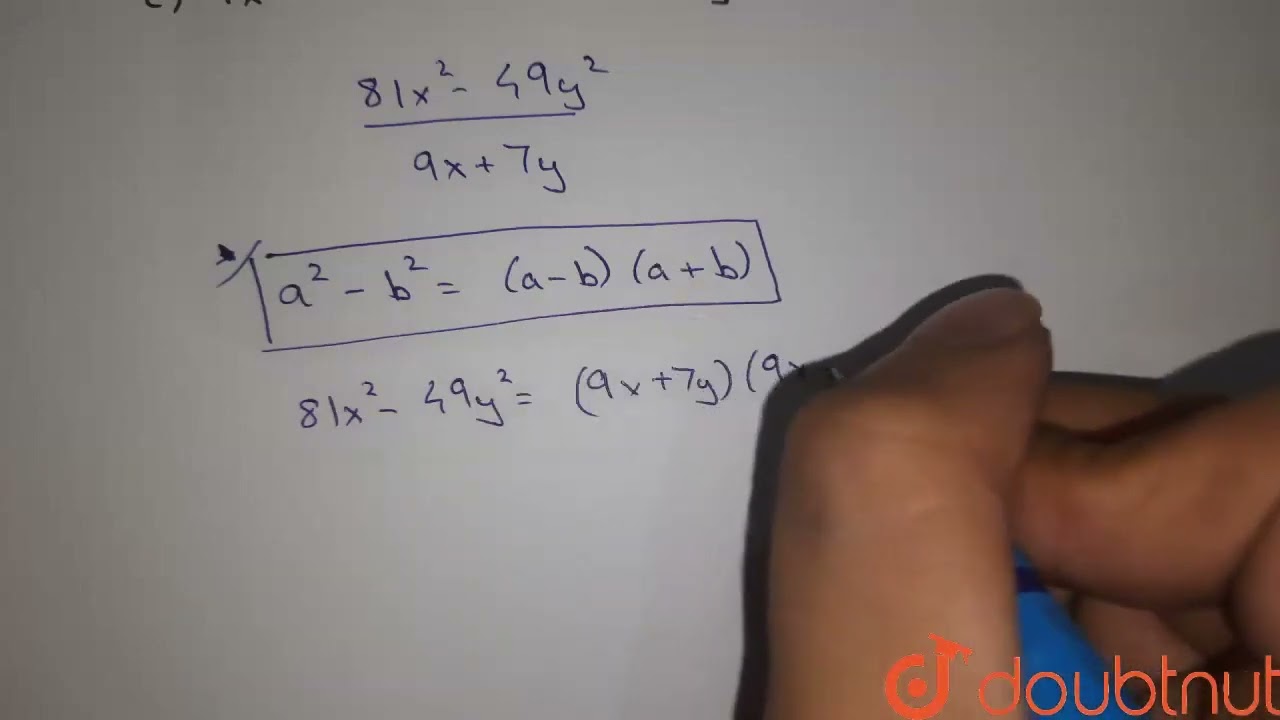 81x² - 49y²
9x + 7y
a² - b² = (a - b) (a + b)
81x² - 49y² = (9x + 7y) (9x
doubtnut